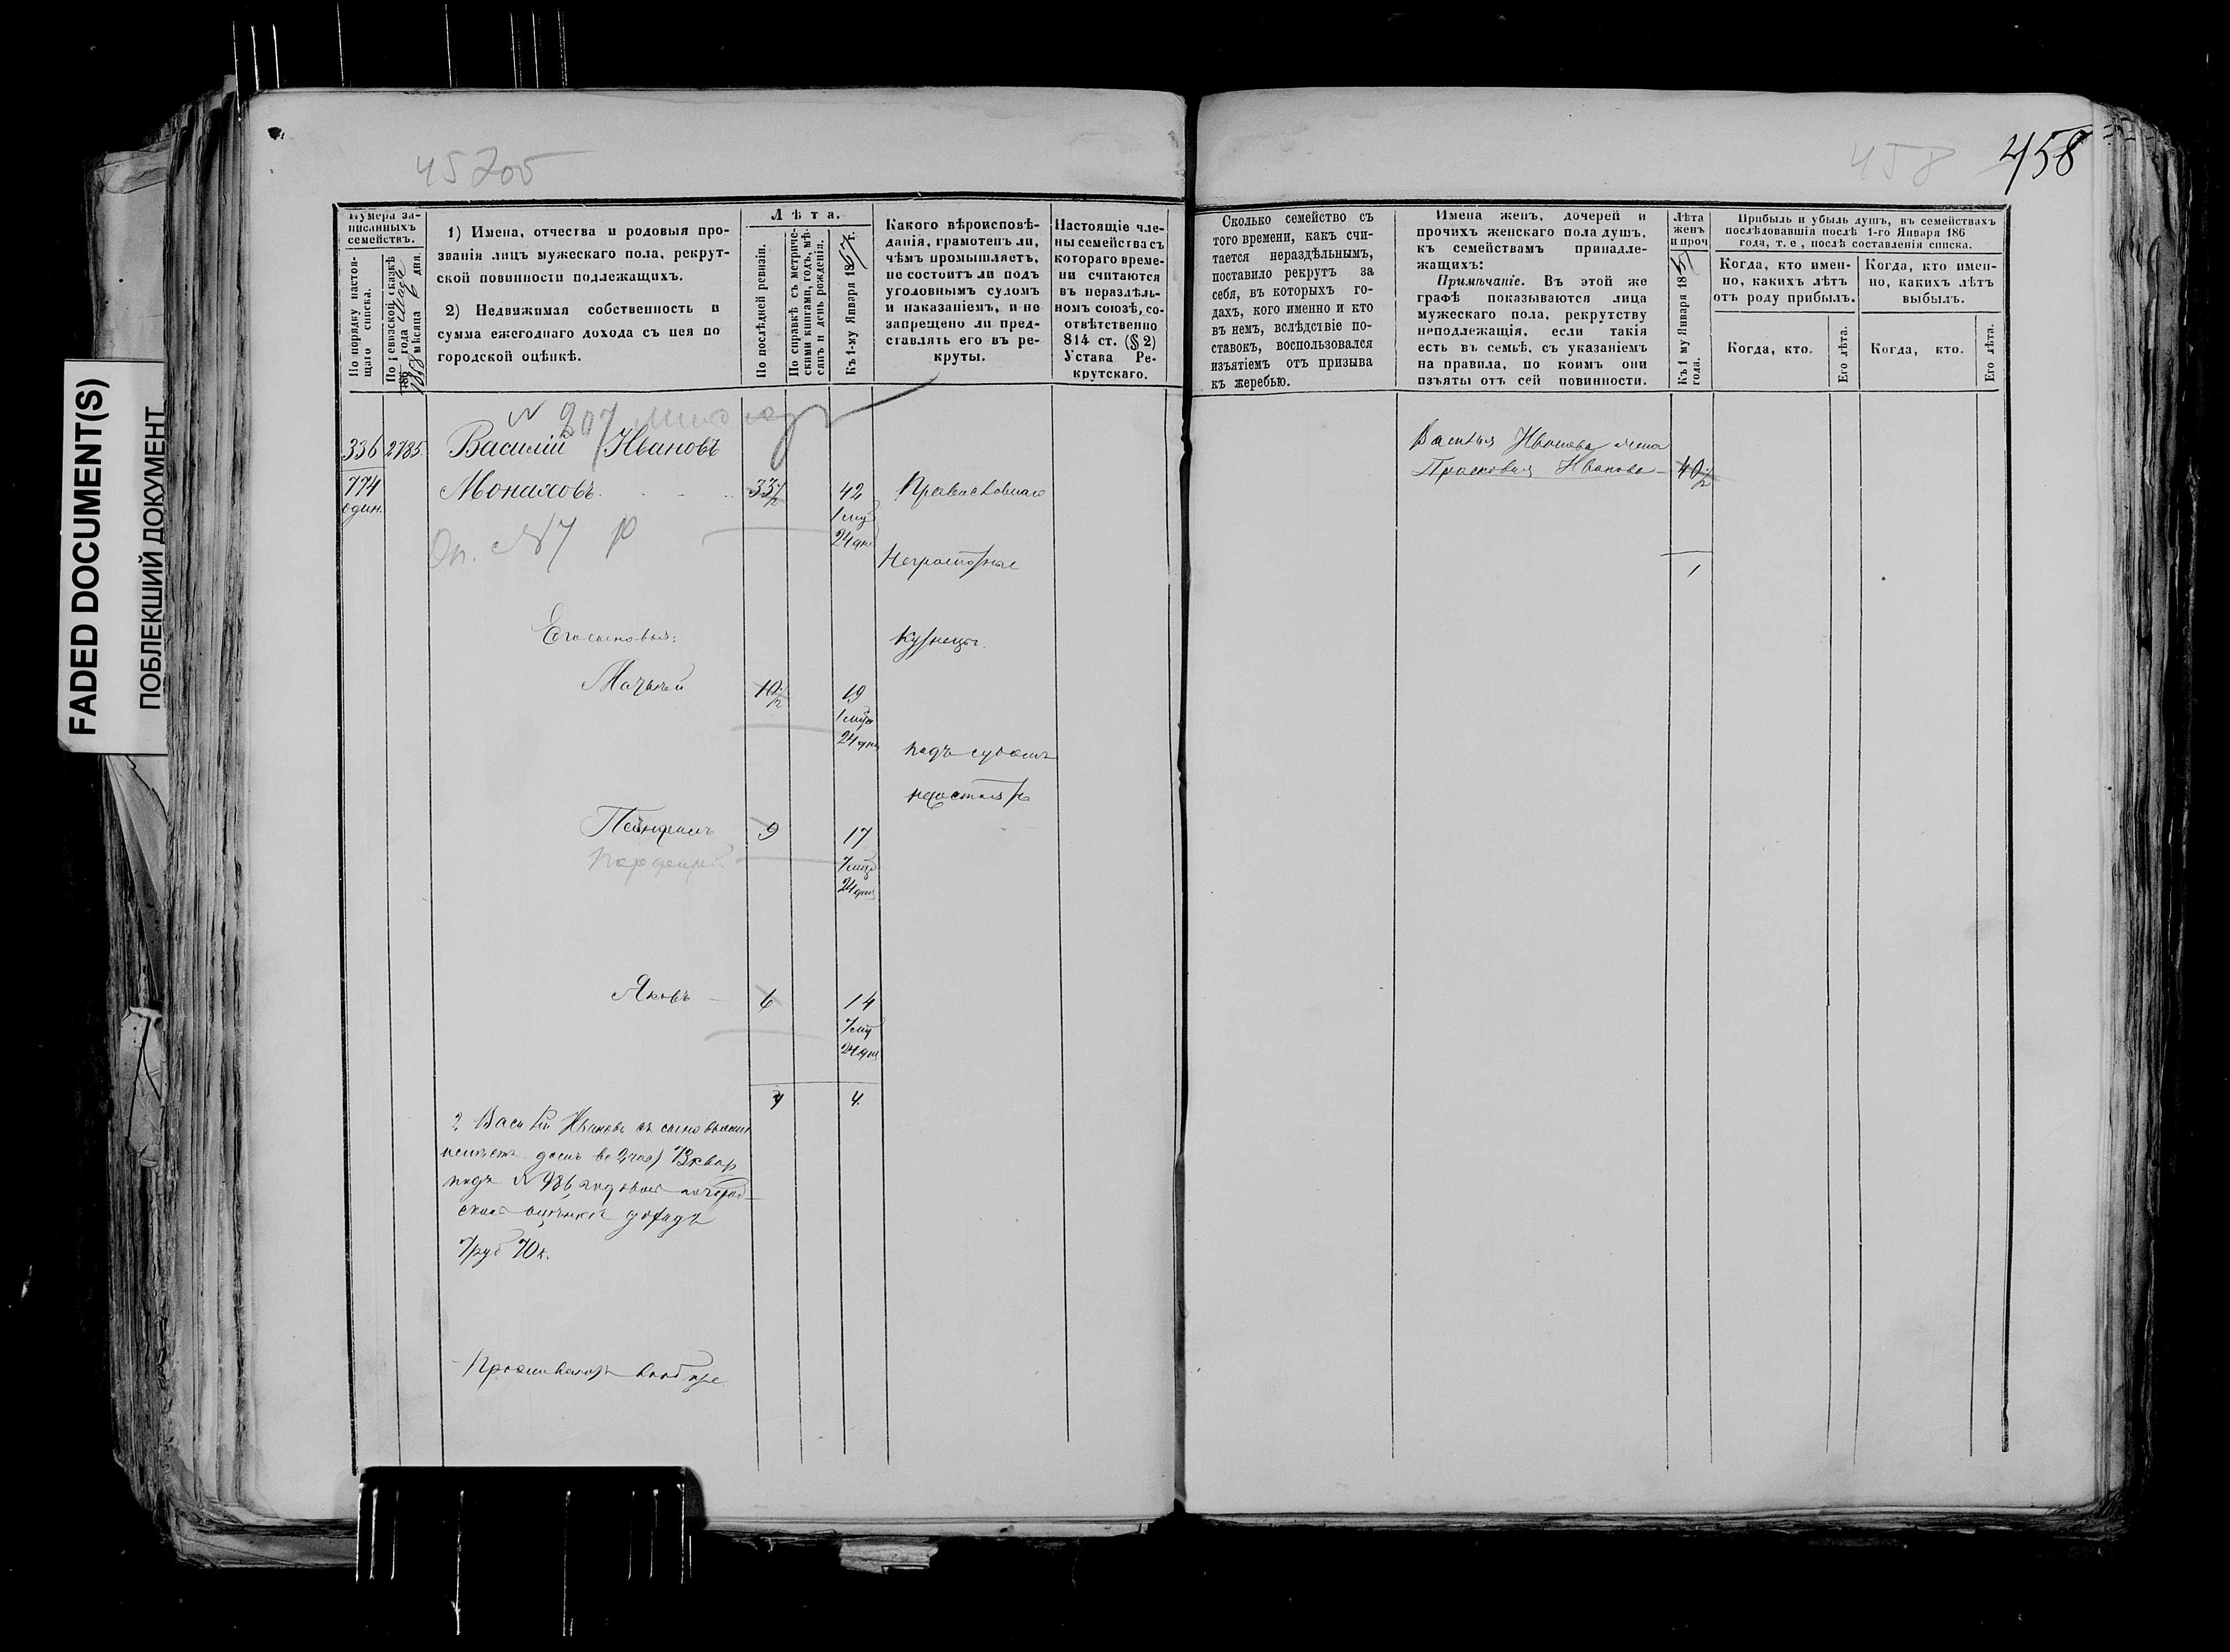 FADED DOCUMENT(S)
ПОБЛЕКШИЙ ДОКУМЕНТ
457об
458 458
Нумера за-
писанныхъ
семействъ.
По порядку настоя-
щаго списка.
По ревизской сказкѣ
186 года
1858 мѣсяца 6 дня.
1) Имена, отчества и родовыя про-
званія лицъ мужескаго пола, рекрут-
ской повинности подлежащихъ.
2) Недвижимая собственность и
сумма ежегоднаго дохода съ нея по
городской оцѣнкѣ.
Лѣта.
По послѣдней ревизіи.
По справкѣ съ метриче-
скими книгами, годъ, мѣ-
сяцъ и день рожденія.
Къ 1-му Января 1867 г.
Какого вѣроисповѣ-
данія, грамотенъ ли,
чѣмъ промышляетъ,
не состоитъ ли подъ
уголовнымъ судомъ
и наказаніемъ, и не
запрещено ли пред-
ставлять его въ ре-
круты.
Настоящіе чле-
ны семейства съ
котораго време-
ни считаются
въ нераздѣль-
номъ союзѣ, со-
отвѣтственно
814 ст. (§ 2)
Устава Ре-
крутскаго.
Сколько семейство съ
того времени, какъ счи-
тается нераздѣльнымъ,
поставило рекрутъ за
себя, въ которыхъ го-
дахъ, кого именно и кто
въ немъ, вслѣдствіе по-
ставокъ, воспользовался
изъятіемъ отъ призыва
къ жеребью.
Имена женъ, дочерей и
прочихъ женскаго пола душъ,
къ семействамъ принадле-
жащихъ:
Примѣчаніе. Въ этой же
графѣ показываются лица
мужескаго пола, рекрутству
неподлежащія, если такія
есть въ семьѣ, съ указаніемъ
на правила, по коимъ они
изъяты отъ сей повинности.
Лѣта
женъ
и проч
Къ 1 му Января 18
года.
Прибыль и убыль душъ, въ семействахъ
послѣдовавшія послѣ 1-го Января 186
года, т. е, послѣ составленія списка.
Когда, кто имен-
но, какихъ лѣтъ
отъ роду прибылъ.
Когда, кто имен-
но, какихъ лѣтъ
выбылъ.
Когда, кто.
Его лѣта.
Когда, кто.
Его лѣта.
N 207
336 2785. Василій Ивановъ
774 33½ 42 Православнаго
один.
1 мѣс
24 дня
Неграмотные
Его сыновья: Кузнецы.
Матвей 10½ 19
1 мѣс
24 дня
подъ судомъ
несостоятъ
9 17
Парфеній
7 мѣс
24 дня
Яковъ 6 14
7 мѣс
24 дня
4 4.
2, Василій Ивановъ съ сыновьями
имѣетъ домъ во 2 час 73 квар
подъ N 986, годовой по город-
ской оцѣнкѣ доходъ
7 руб 70 к.
Проживаютъ
Василья Иванова жена
Прасковья Иванова 40½
1